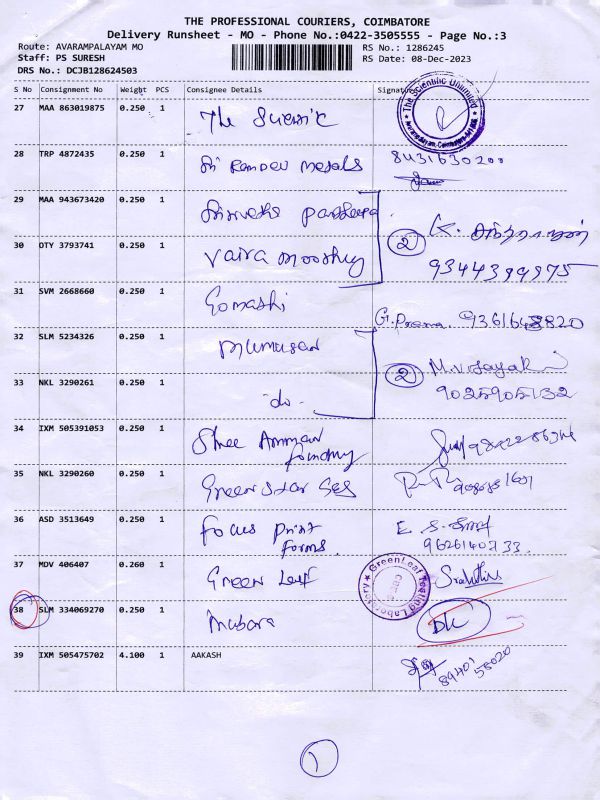 THE PROFESSIONAL COURIERS, COIMBATORE
Delivery Runsheet - MO - Phone No.:0422-3505555 - Page No.:3
Route: AVARAMPALAYAM MO RS No.: 1286245
Staff: PS SURESH RS Date: 08-Dec-2023
DRS No.: DCJB128624503
S No Consignment No Weight PCS Consignee Details Signature
The Scientific Unlimited
27 MAA 863019875 0.250 1 The
28 TRP 4872435 0.250 1 Sri 8431630200
29 MAA 943673420 0.250 1
② K.
30 DTY 3793741 0.250 1 Vaira Moorthy
9344399975
31 SVM 2668660 0.250 1 Gomathi G. Prema.
32 SLM 5234326 0.250 1 Murugan
② M. Vijayak
33 NKL 3290261 0.250 1 -do- 9025905132
34 IXM 505391053 0.250 1 Shree Amman
foundry
35 NKL 3290260 0.250 1 Green Star
36 ASD 3513649 0.250 1 Focus Print E. S.
forms. 9626140733.
37 MDV 406407 0.260 1 Green Leaf GreenLeaf Testing Laboratory
38 SLM 334069270 0.250 1 DK
39 IXM 505475702 4.100 1 AAKASH
89401
58020
1